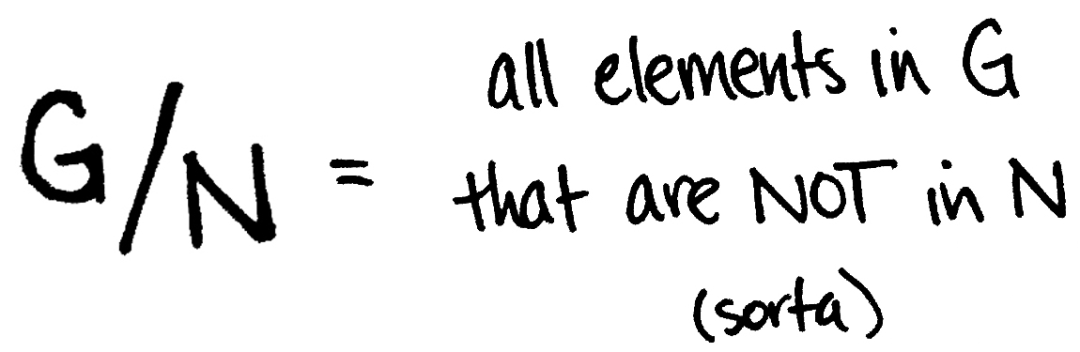 all elements in G
G/N = that are NOT in N
(sorta)